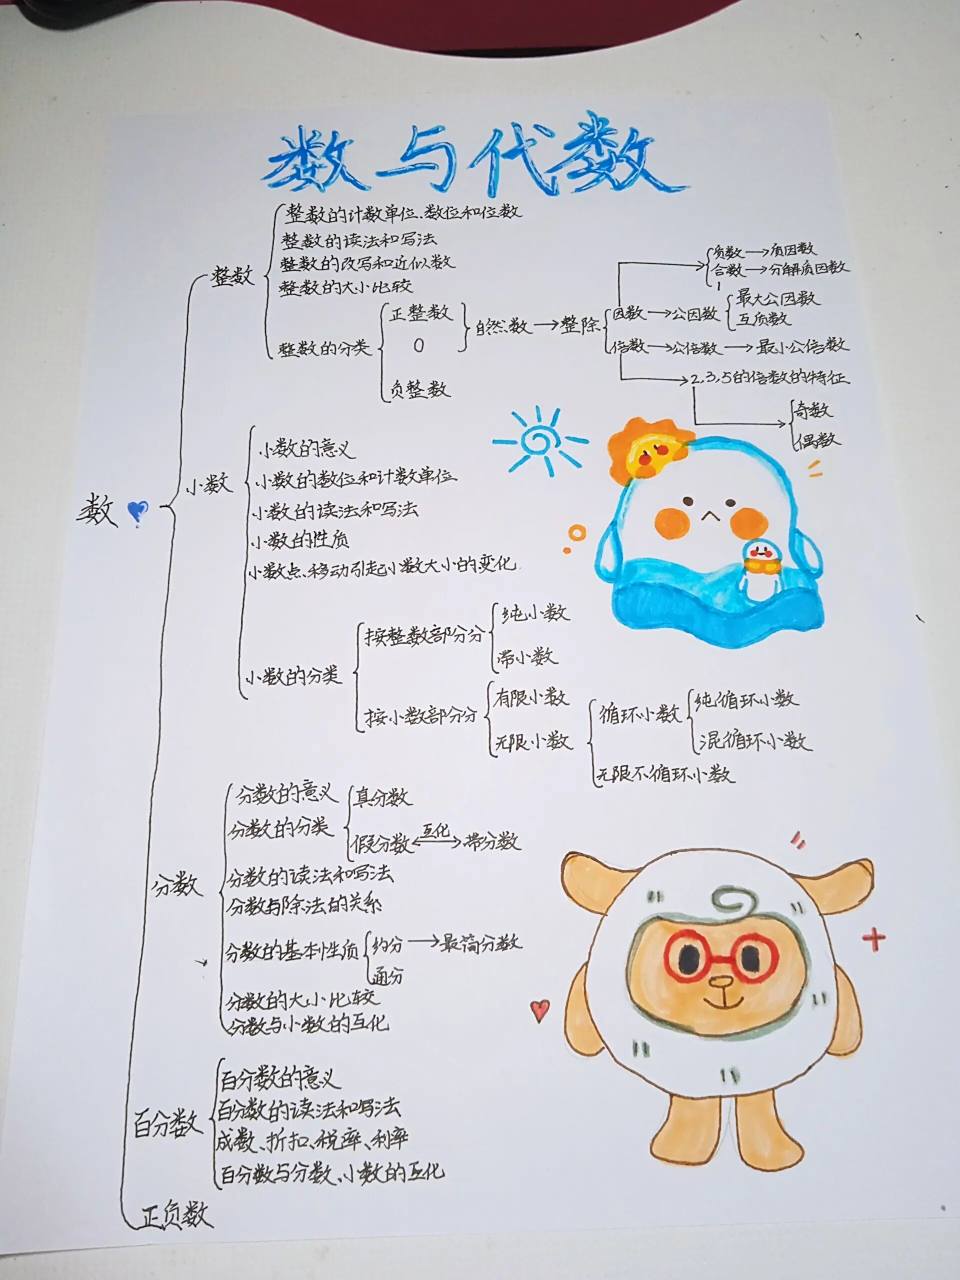 数与代数
整数的计数单位、数位和位数
整数的读法和写法
整数
整数的改写和近似数
整数的大小比较
整数的分类
正整数
0
负整数
自然数→整除
因数→公因数
最大公因数
互质数
质数→质因数
合数→分解质因数
倍数→公倍数→最小公倍数
2,3,5的倍数的特征
奇数
偶数
数
小数
小数的意义
小数的数位和计数单位
小数的读法和写法
小数的性质
小数点、移动引起小数大小的变化
小数的分类
按整数部分分
纯小数
带小数
按小数部分分
有限小数
无限小数
循环小数
纯循环小数
混循环小数
无限不循环小数
分数
分数的意义
分数的分类
真分数
假分数 互化 带分数
分数的读法和写法
分数与除法的关系
分数的基本性质
约分→最简分数
通分
分数的大小比较
分数与小数的互化
百分数
百分数的意义
百分数的读法和写法
成数、折扣、税率、利率
百分数与分数、小数的互化
正负数